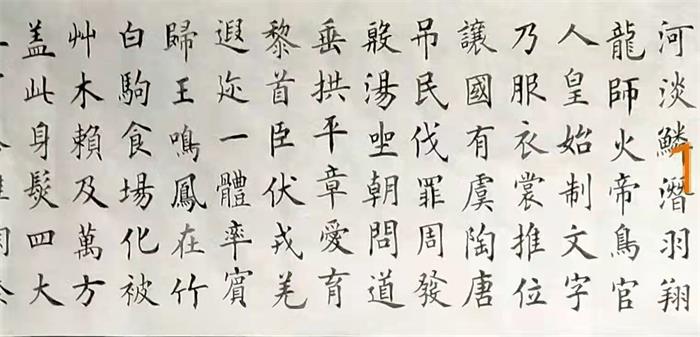 河淡鱗潛羽翔
龍師火帝鳥官
人皇始制文字
乃服衣裳推位
讓國有虞陶唐
弔民伐罪周發
殷湯坐朝問道
垂拱平章愛育
黎首臣伏戎羌
遐迩一體率賓
歸王鳴鳳在竹
白駒食場化被
艸木賴及萬方
盖此身髮四大